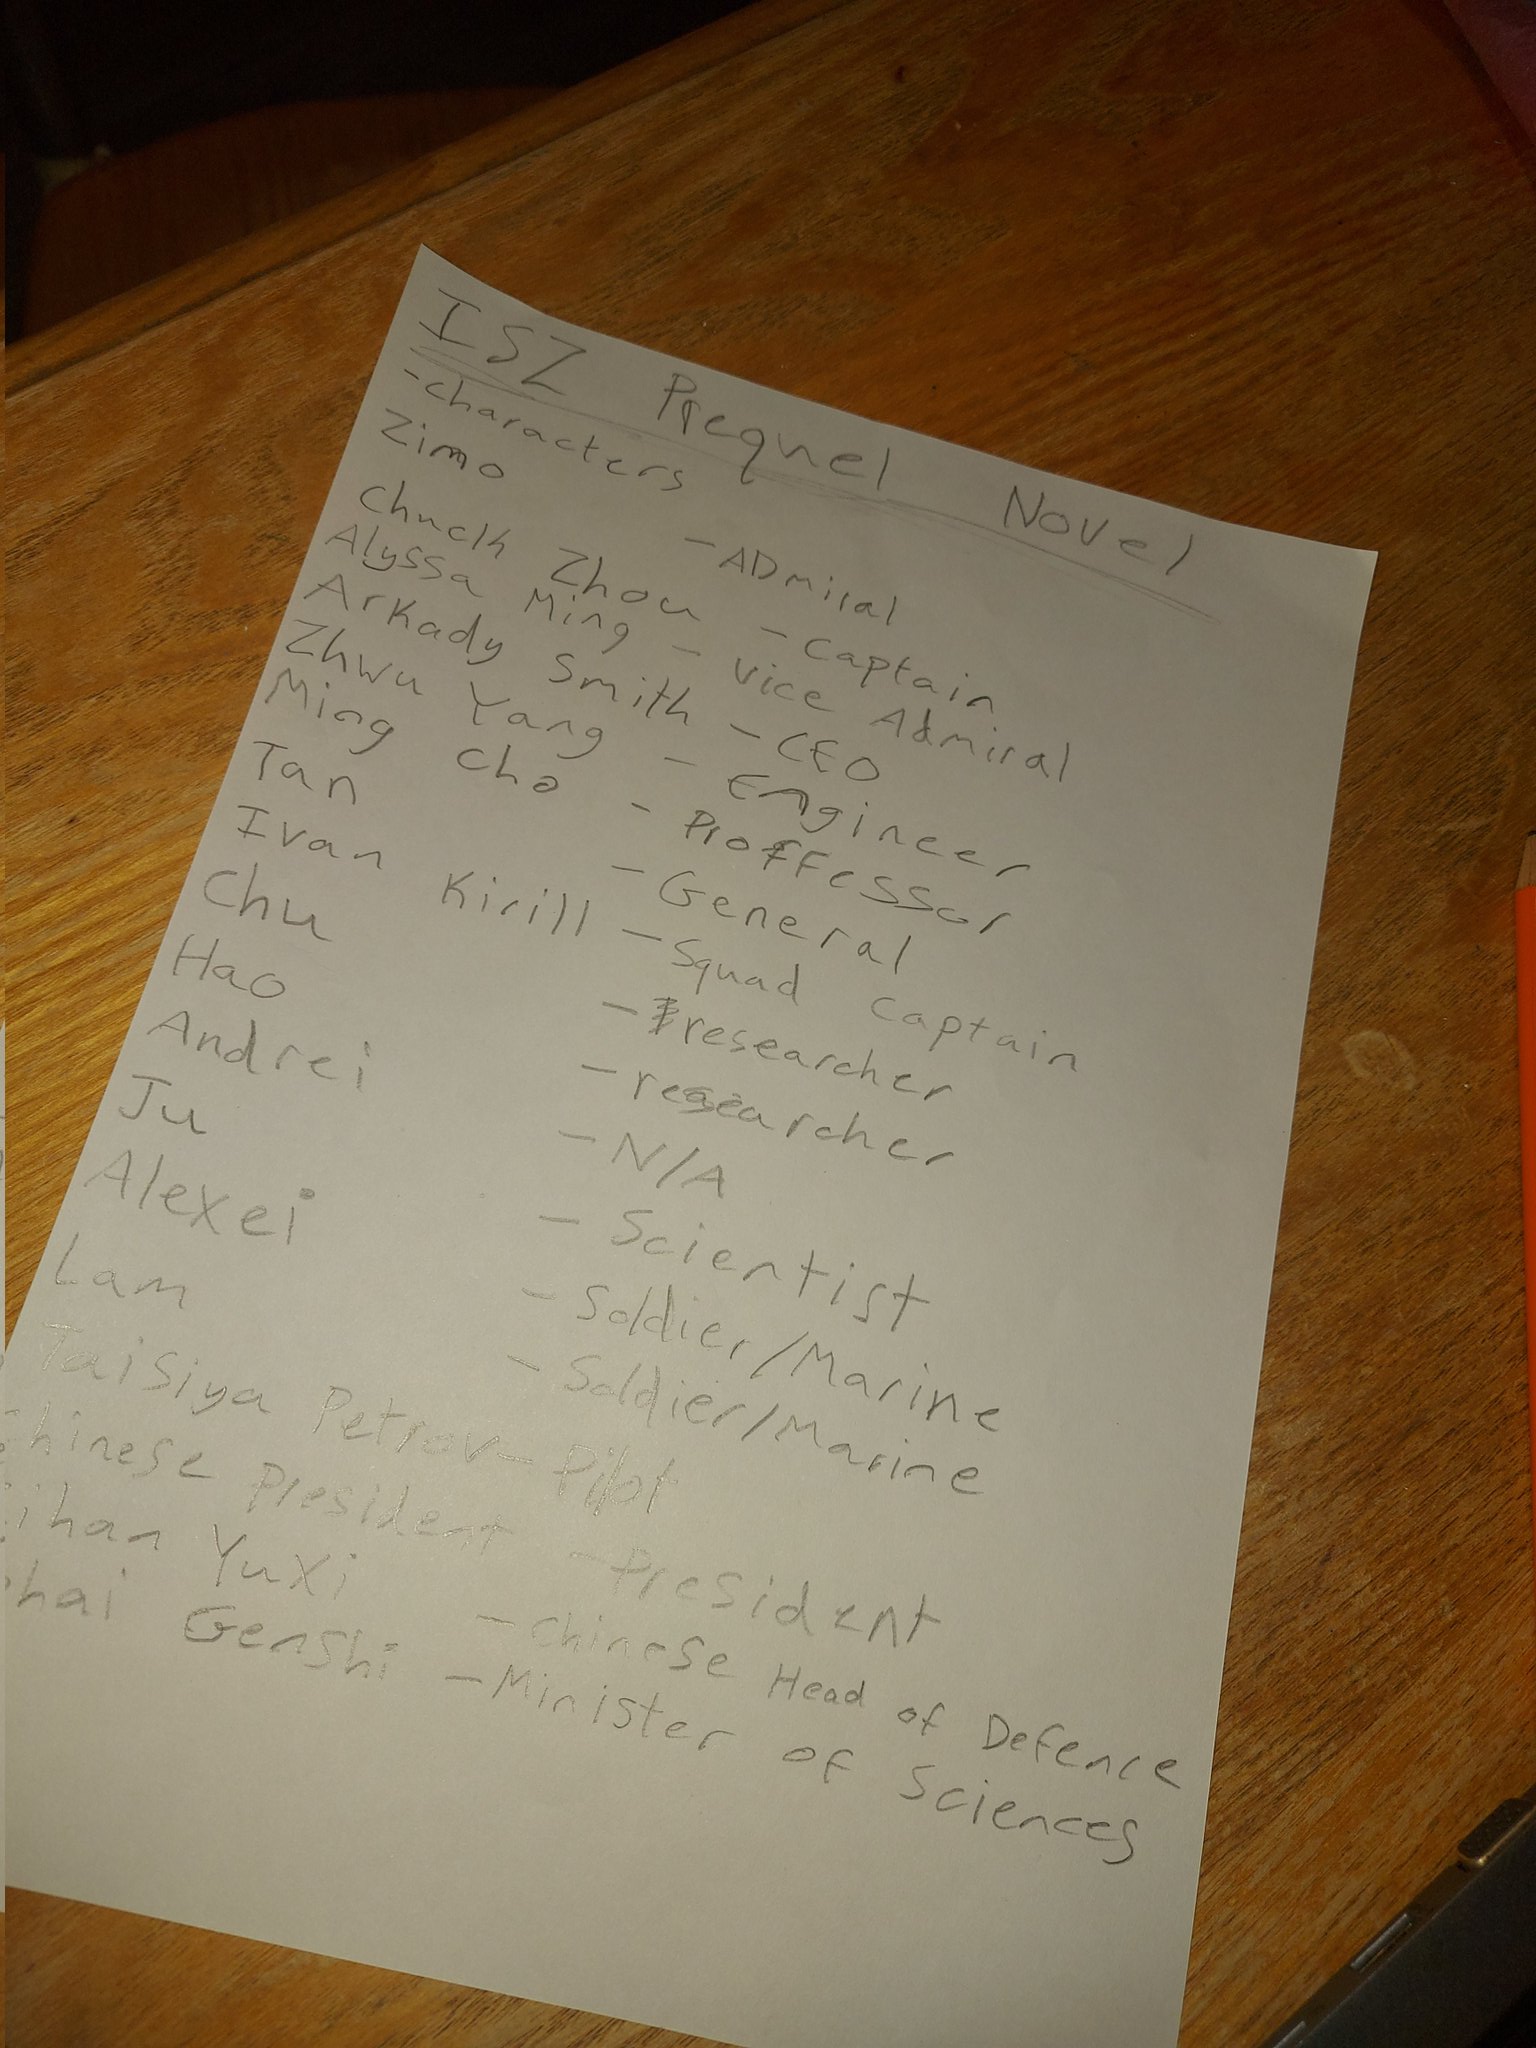 ISZ Prequel Novel
-characters
Zimo - ADmiral
Chuck Zhou - Captain
Alyssa Ming - Vice Admiral
Arkady Smith - CEO
Zhwu Yang - Engineer
Ming Cho - Proffessor
Tan - General
Ivan Kirill - Squad Captain
Chu - researcher
Hao - researcher
Andrei - N/A
Ju - Scientist
Alexei - Soldier/Marine
Lam - Soldier/Marine
Taisiya Petrov - Pilot
Chinese President - President
Yuxi - Chinese Head of Defence
Genshi - Minister of Sciences